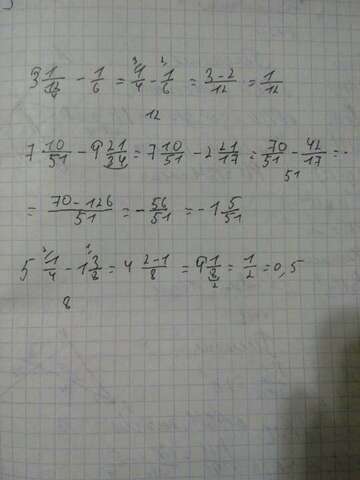 3 1/12 - 1/6 = 1/4 - 1/6 = 3-2/12 = 1/12
12
7 10/51 - 9 21/34 = 7 10/51 - 2 21/17 = 70/51 - 42/17 =
51
= 70-126/51 = - 56/51 = -1 5/51
5 1/4 - 1 3/8 = 4 2-1/8 = 4 1/8 = 1/2 = 0,5
8